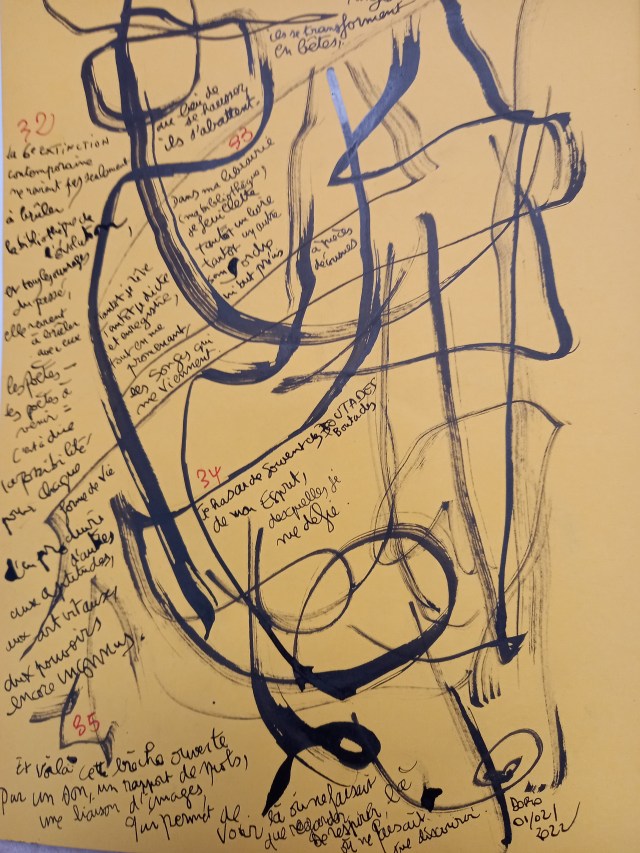 ils se transforment
en bêtes,
au lieu de
se hausser,
ils s'abattent.
32
La 6e EXTINCTION
contemporaine
ne revient pas seulement
à brûler
la bibliothèque de
l'évolution,
en tous les ouvrages
du passé,
elle revient
à brûler
avec eux
les poètes —
les poètes à
venir =
c'est à dire
la possibilité
pour chaque
forme de vie
d'en produire
d'autres
aux aptitudes,
aux art vitaux,
aux pouvoirs
encore inconnus.
33
Dans ma librairie
(ma bibliothèque)
je feuillette
tantôt un livre
tantôt un autre
sans ordre
ni but
à pièces
décousues
tantôt je rêve
tantôt je dicte
et enregistre,
tout en me
promenant,
les songes qui
me viennent.
34
je hasarde souvent des BOUTADES
Boutades
de mon Esprit,
desquelles je
me défie.
35
Et voilà cette brèche ouverte
Par un Don, un rapport de mots,
une liaison d'images,
qui permet de voir là où ne faisait
que regarder,
De respirer là
où ne faisait
que découvrir.
DORO
01/02/
2022